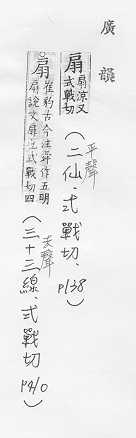 廣韻
扇 扇涼又
式戰切
(二仙、式戰切、p138)
平聲
扇 崔豹古今注舜作五明
扇說文扉也式戰切四
(三十三線、式戰切 p410)
去聲